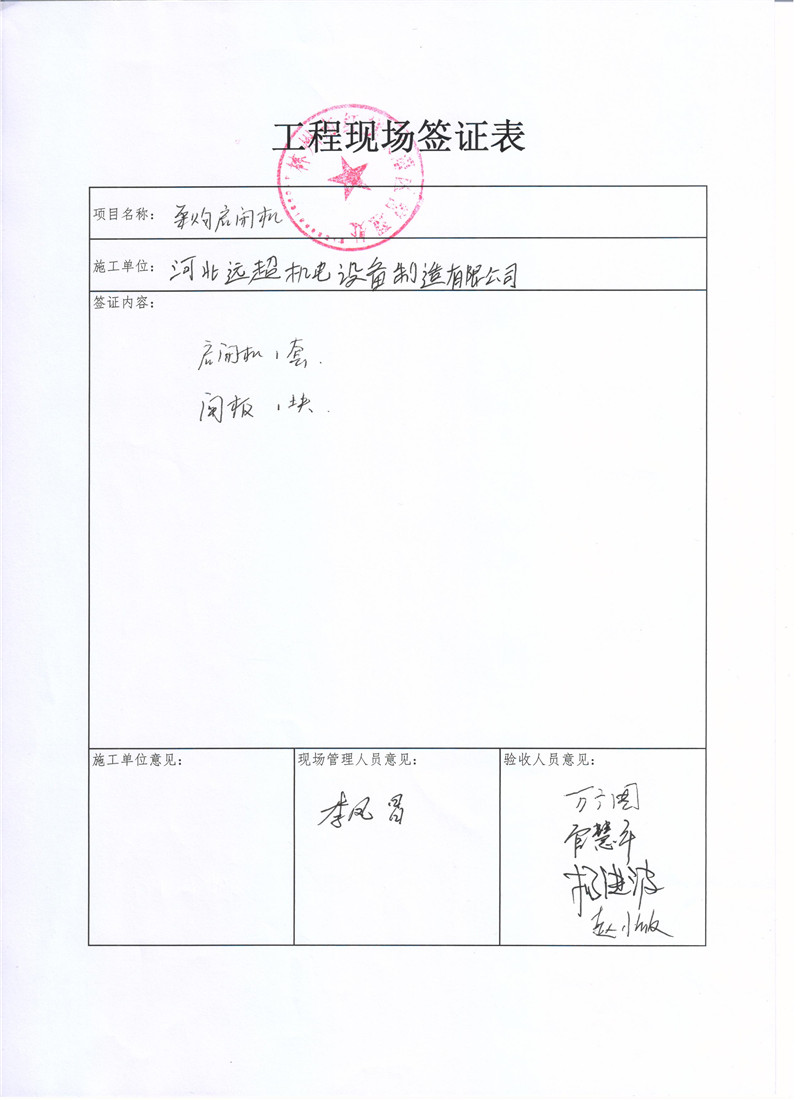 工程现场签证表
项目名称：采购启闭机
施工单位：河北远超机电设备制造有限公司
签证内容：
启闭机 1套.
闸板 1块.
施工单位意见：
现场管理人员意见：
李凤昌
验收人员意见：
官慧平
杨进波
赵小敏